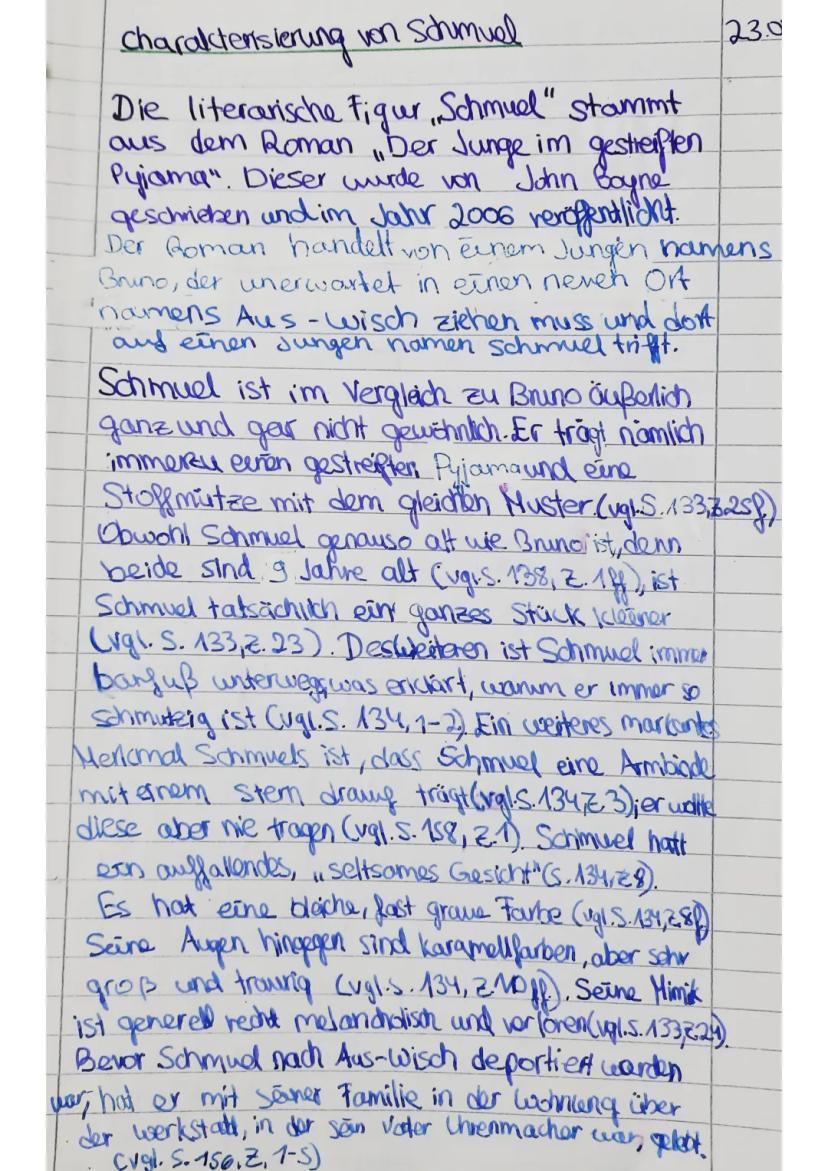 Charakterisierung von Schmuel
23.0
Die literarische Figur „Schmuel" stammt
aus dem Roman „Der Junge im gestreiften
Pyjama". Dieser wurde von John Boyne
geschrieben und im Jahr 2006 veröffentlicht.
Der Roman handelt von einem Jungen namens
Bruno, der unerwartet in einen neuen Ort
namens Aus-wisch ziehen muss und dort
auf einen Jungen namen Schmuel trifft.
Schmuel ist im Vergleich zu Bruno äußerlich
ganz und gar nicht gewöhnlich. Er trägt nämlich
immerzu einen gestreiften Pyjama und eine
Stoffmütze mit dem gleichen Muster (vgl. S. 133, Z. 25f.)
Obwohl Schmuel genauso alt wie Bruno ist, denn
beide sind 9 Jahre alt (vgl. S. 138, Z. 1ff), ist
Schmuel tatsächlich ein ganzes Stück kleiner
(vgl. S. 133, Z. 23). Desweiteren ist Schmuel immer
barfuß unterwegs, was erklärt, warum er immer so
schmutzig ist (vgl. S. 134, 1-2). Ein weiteres markantes
Merkmal Schmuels ist, dass Schmuel eine Armbinde
mit einem Stern drauf trägt (vgl. S. 134 Z. 3); er wollte
diese aber nie tragen (vgl. S. 158, Z. 1). Schmuel hatt
ein auffallendes, „seltsames Gesicht" (S. 134, Z 8).
Es hat eine bleiche, fast graue Farbe (vgl. S. 134, Z 8f)
Seine Augen hingegen sind karamellfarben, aber sehr
groß und traurig (vgl. S. 134, Z 10ff.). Seine Mimik
ist generell recht melancholisch und verloren (vgl. S. 133, Z 24).
Bevor Schmuel nach Aus-Wisch deportiert worden
war, hat er mit seiner Familie in der Wohnung über
der Werkstatt, in der sein Vater Uhrenmacher war, gelebt.
(vgl. S. 156, Z, 1-5)